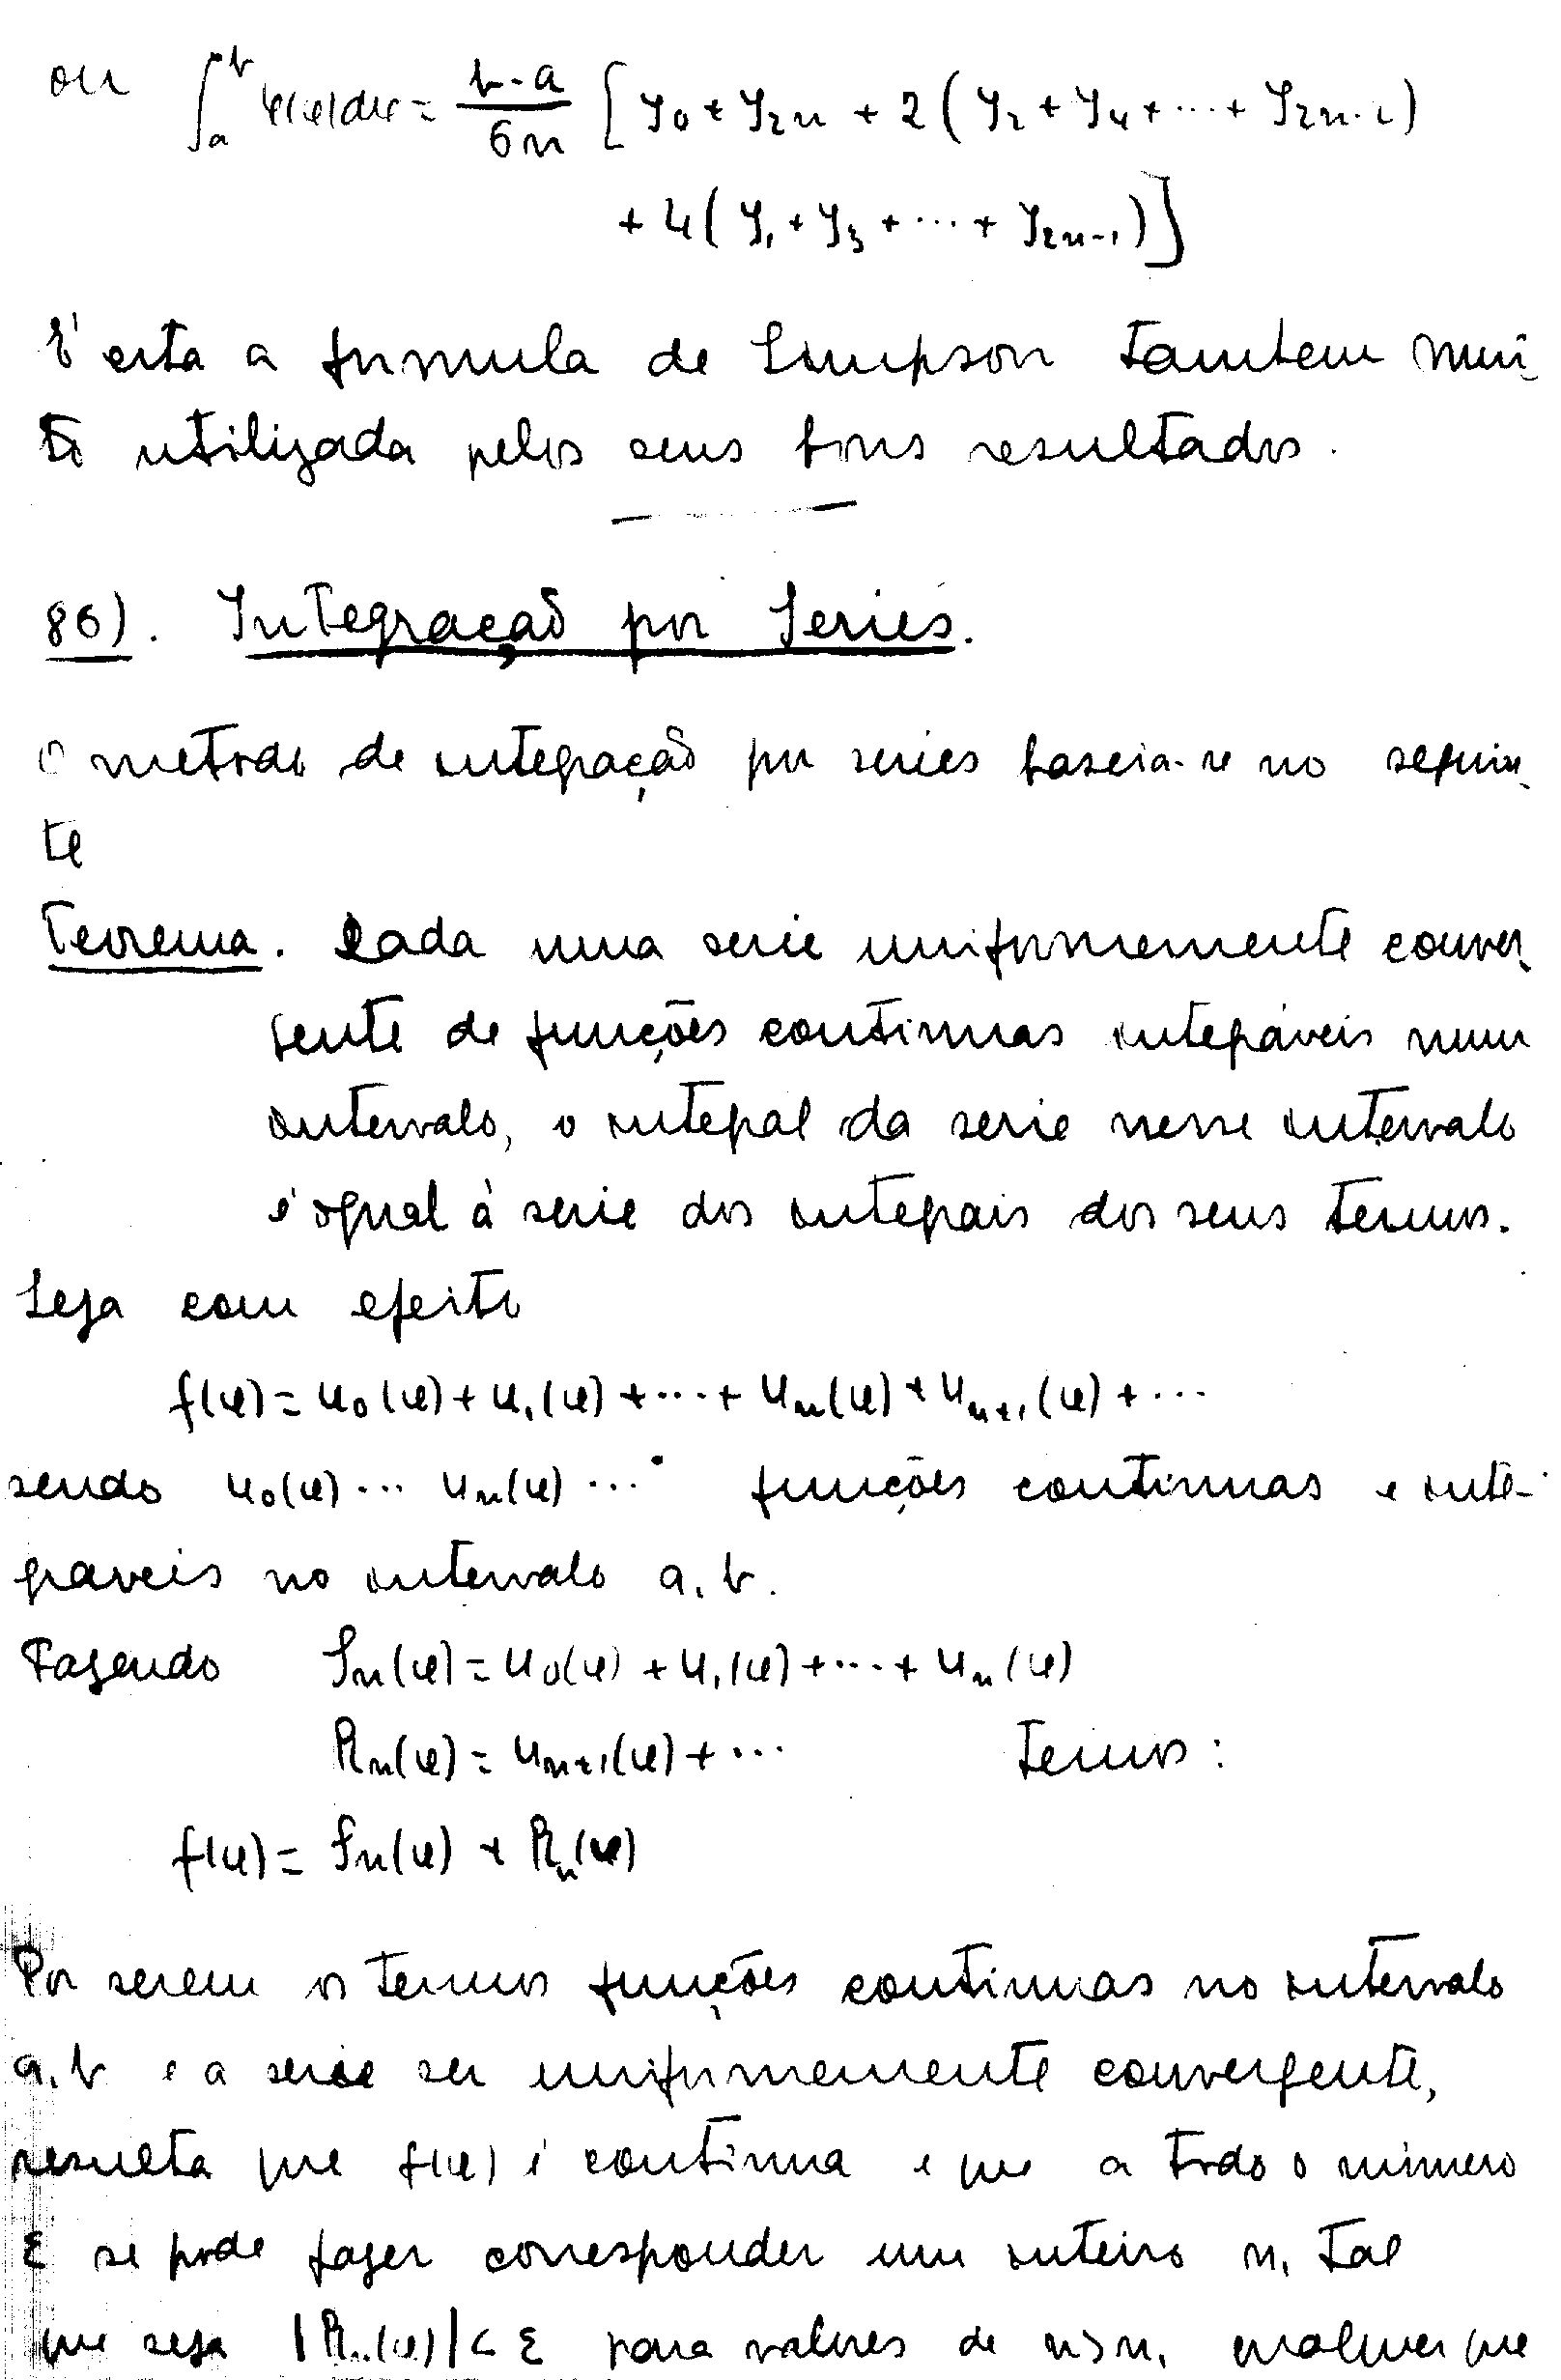 ou ∫ₐᵇ φ(x)dx = (b-a)/6n [y₀ + y₂ₙ + 2(y₂ + y₄ + ... + y₂ₙ₋₂)
+ 4(y₁ + y₃ + ... + y₂ₙ₋₁)]
E' esta a formula de Simpson tambem mui-
to utilizada pelos seus bons resultados.
86). Integração por Series.
O metodo de integração por series baseia-se no seguin-
te
Teorema. Dada uma serie uniformemente conver-
gente de funções continuas integráveis num
intervalo, o integral da serie nesse intervalo
é igual à serie dos integrais dos seus termos.
Seja com efeito
f(x) = u₀(x) + u₁(x) + ... + uₙ(x) + uₙ₊₁(x) + ...
sendo u₀(x) ... uₙ(x) ... funções continuas e inte-
graveis no intervalo a, b.
Fazendo Sₙ(x) = u₀(x) + u₁(x) + ... + uₙ(x)
Rₙ(x) = uₙ₊₁(x) + ... temos:
f(x) = Sₙ(x) + Rₙ(x)
Por serem os termos funções continuas no intervalo
a, b e a serie ser uniformemente convergente,
resulta que f(x) é continua e que a todo o número
ε se pode fazer corresponder um inteiro n₁ tal
que seja |Rₙ(x)| < ε para valores de n > n₁ qualquer que